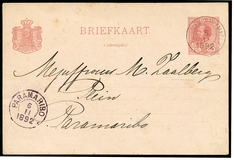 BRIEFKAART
1892
Mejufvrouw M. Zaalberg
Plein
Paramaribo
PARAMARIBO
6
11
1892